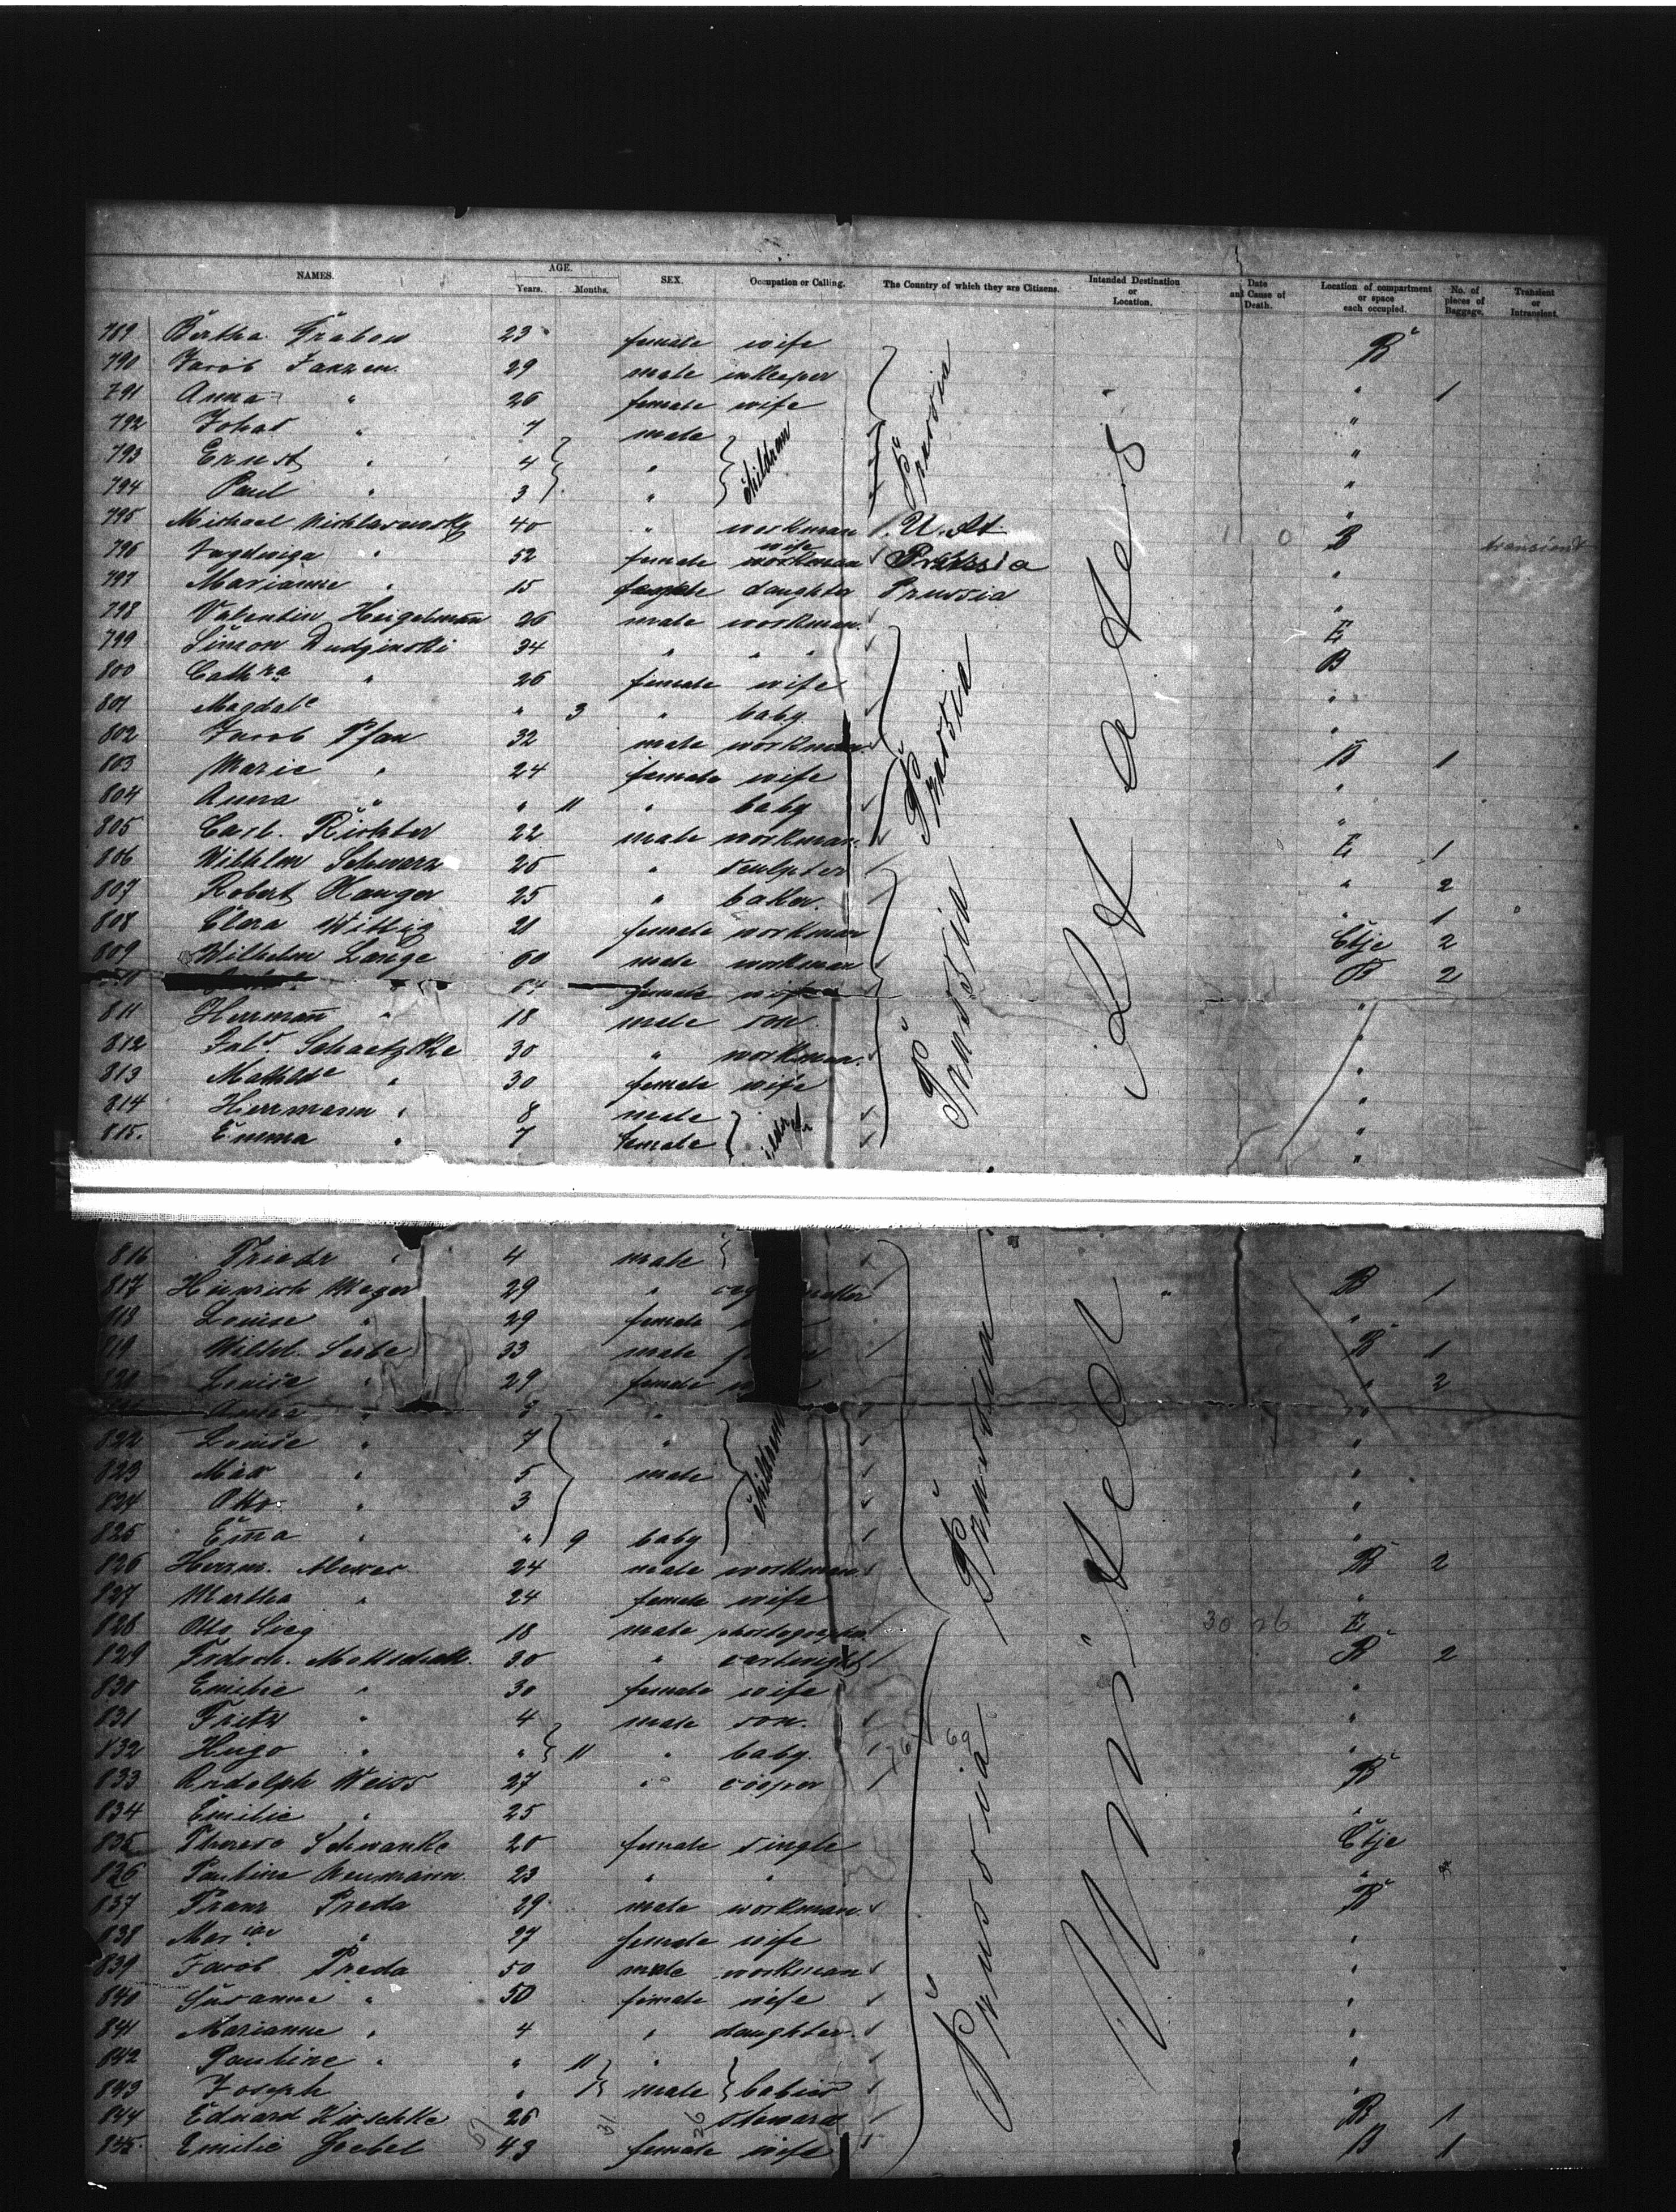 NAMES. AGE. SEX. Occupation or Calling. The Country of which they are Citizens. Intended Destination or Location. Date and Cause of Death. Location of compartment or space each occupied. No. of pieces of Baggage. Transient or Intransient.
Years. Months.
789 Bertha Grabow 23 female wife B
790 Jacob Janzen 29 male inkeeper 1
791 Anna " 26 female wife "
792 7 male "
793 Ernst " 4 " children Prussia "
794 Paul " 3 " "
795 Michael 40 " workman U. St B transient
796 " 52 female wife Prussia "
797 Marianne " 15 daughter Prussia "
798 Valentin Heigelmann 26 male workman E
799 Simon Dudginski 34 " " B
800 Cathra " 26 female wife "
801 Magdale " 3 " baby "
802 Jacob Pfau 32 male workman B 1
803 Marie " 24 female wife "
804 Anna " " 11 " baby Prussia "
805 Carl Richter 22 male workman E 1
806 Wilhelm Schwarz 25 " sculpter " 2
807 Robert 25 " baker " 1
808 Clara Wittig 21 female workman Ctje 2
809 Wilhelm Lange 60 male workman B 2
female wife "
811 Herrmann " 18 male son "
812 30 " workman Prussia "
813 Mathilde " 30 female wife "
814 Herrmann " 8 male "
815. Emma " 7 female "
States
816 Friedr " 4 male
817 Heinrich Meyer 29 " B 1
818 Louise " 29 female "
819 Wilhl. 33 male B 1
Louise " 29 female " 2
Anna " " "
822 Louise " 7 " "
823 Max " 5 male children "
824 Otto " 3 "
825 Em̄a " " 9 baby Prussia "
826 Herrm. 24 male workman B 2
827 Martha " 24 female wife "
828 Otto Sieg 18 male 30 26 E
829 30 " cartwright B 2
830 Emilie " 30 female wife "
831 Fritz " 4 male son. "
832 Hugo " " 11 " baby. "
833 Rudolph Weiss 27 " cooper B
834 Emilie " 25 "
835 Therese Schwanke 20 female single Ctje
836 Pauline Neumann 23 " " "
837 Franz Preda 29 male workman B
838 " 27 female wife "
839 Jacob Preda 50 male workman "
840 Susanne " 50 female wife "
841 Marianne " 4 " daughter Prussia "
842 Pauline " " 11 " "
843 Joseph " male babies "
844 Eduard 26 steward B 1
845. Emilie Goebel 43 female wife B 1
United